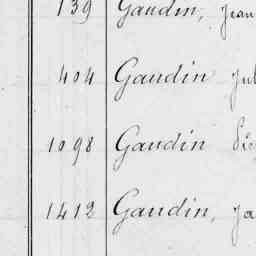 139 Gaudin, Jean
404 Gaudin Jul
1098 Gaudin
1412 Gaudin, Ja